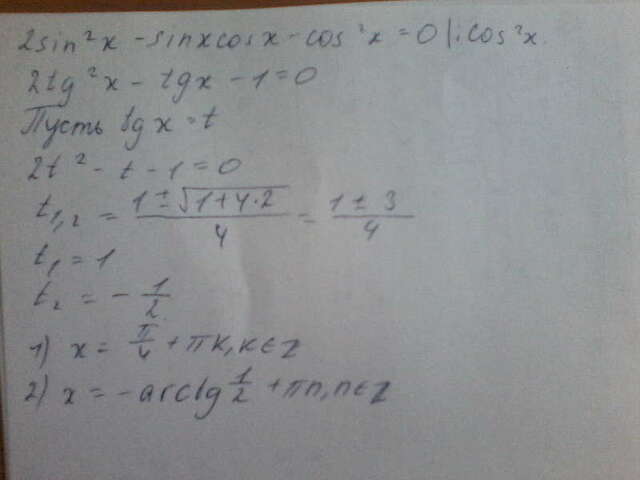 2sin²x - sinxcosx - cos²x = 0 |: cos²x
2tg²x - tgx - 1 = 0
Пусть tgx = t
2t² - t - 1 = 0
t₁,₂ = (1 ± √(1+4·2))/4 = (1 ± 3)/4
t₁ = 1
t₂ = - 1/2
1) x = π/4 + πk, k∈Z
2) x = - arctg 1/2 + πn, n∈Z